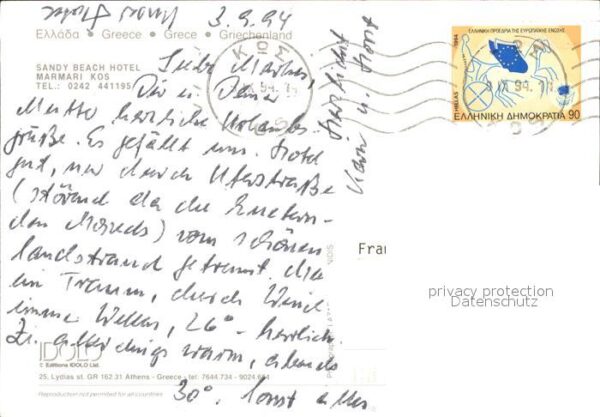 3.9.94
Ελλάδα • Greece • Grèce • Griechenland
SANDY BEACH HOTEL
MARMARI KOS
TEL.: 0242 441195
Dir u. Deiner
Mutter herzliche Urlaubs-
grüße. Es gefällt uns. Hotel
gut, nur durch Uferstraße
(störend da die
) vom schönen
Sandstrand getrennt. Die
ein Traum, durch Wind
immer Wellen, 26° - herrlich.
Zi. allerdings warm, abends
30°. Sonst alles
Herzlichst
Karin u. Horst
ΚΩΣ
94
1994 ΕΛΛΗΝΙΚΗ ΠΡΟΕΔΡΙΑ ΤΗΣ ΕΥΡΩΠΑΪΚΗΣ ΕΝΩΣΗΣ
HELLAS
ΕΛΛΗΝΙΚΗ ΔΗΜΟΚΡΑΤΙΑ 90
Frau
privacy protection
Datenschutz
IDOLO
© Editions IDOLO Ltd.
25, Lydias st. GR 162.31 Athens - Greece - tel: 7644.734 - 9024.664
Reproduction not permitted for all countries